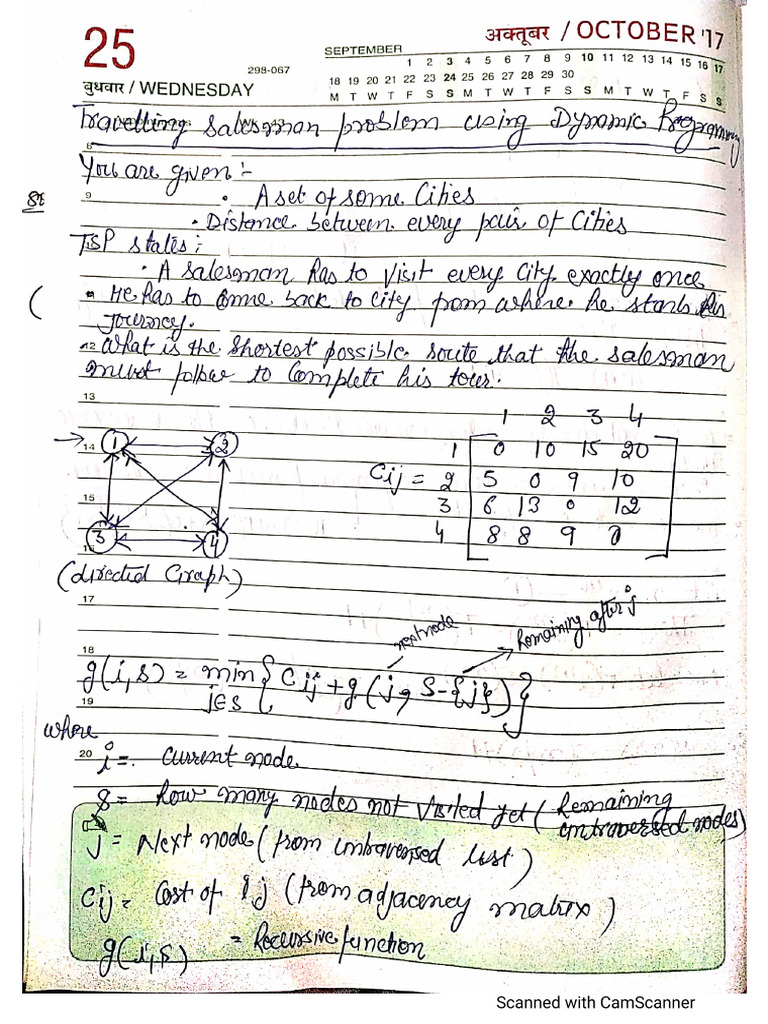 25
अक्तूबर / OCTOBER '17
SEPTEMBER
1 2 3 4 5 6 7 8 9 10 11 12 13 14 15 16 17
298-067
18 19 20 21 22 23 24 25 26 27 28 29 30
बुधवार / WEDNESDAY
M T W T F S S M T W T F S S M T W T F S S
Travelling salesman problem using Dynamic Programming
8
You are given :-
9
• A set of some Cities
• Distance between every pair of Cities
TSP states :
• A salesman has to visit every city exactly once
• He has to come back to city from where he starts his
Journey.
12
• What is the shortest possible route that the salesman
must follow to complete his tour.
13
1 2 3 4
14
1 2
1 0 10 15 20
Cij = 2 5 0 9 10
15
3 6 13 0 12
3 4
4 8 8 9 0
16
(directed Graph)
17
next node
Remaining after j
18
g(i,s) = min { Cij + g(j, S-{j}) }
j∈s
19
where
20
i = current node
S = How many nodes not visited yet (Remaining
untraversed nodes)
j = Next node (from untraversed list)
Cij = Cost of ij (from adjacency matrix)
g(i,s) = Recursive function
Scanned with CamScanner